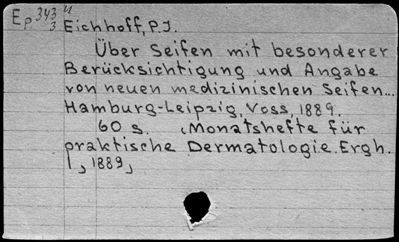 Ep 343 u
3 Eichhoff, P.J.
Über Seifen mit besonderer
Berücksichtigung und Angabe
von neuen medizinischen Seifen...
Hamburg-Leipzig, Voss, 1889.
60 s. (Monatshefte für
praktische Dermatologie. Ergh.
1, 1889,